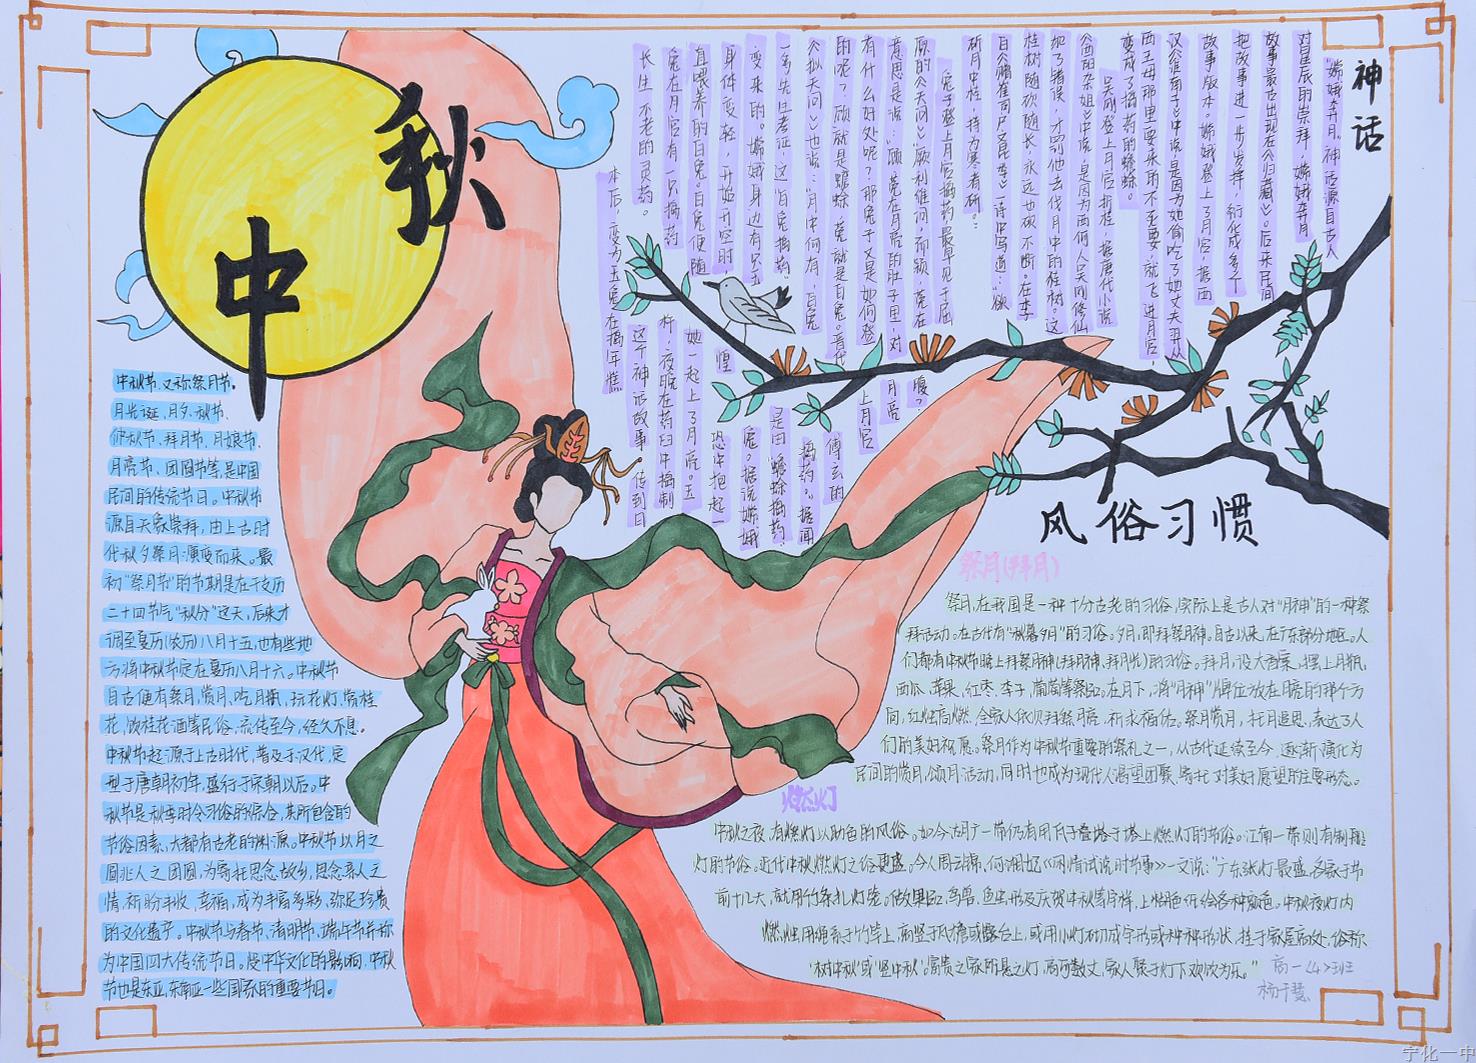 中秋
中秋节、又称祭月节、
月光诞、月夕、秋节、
仲秋节、拜月节、月娘节、
月亮节、团圆节等,是中国
民间的传统节日。中秋节
源自天象崇拜,由上古时
代秋夕祭月演变而来。最
初“祭月节”的节期是在干支历
二十四节气“秋分”这天,后来才
调至夏历(农历)八月十五,也有些地
方将中秋节定在夏历八月十六。中秋节
自古便有祭月、赏月、吃月饼、玩花灯、赏桂
花、饮桂花酒等民俗,流传至今,经久不息。
中秋节起源于上古时代,普及于汉代,定
型于唐朝初年,盛行于宋朝以后。中
秋节是秋季时令习俗的综合,其所包含的
节俗因素,大都有古老的渊源。中秋节以月之
圆兆人之团圆,为寄托思念故乡,思念亲人之
情,祈盼丰收、幸福,成为丰富多彩、弥足珍贵
的文化遗产。中秋节与春节、清明节、端午节并称
为中国四大传统节日。受中华文化的影响,中秋
节也是东亚、东南亚一些国家的重要节日。
神话
“嫦娥奔月”神话源自古人
对星辰的崇拜,嫦娥奔月
故事最早出现在《归藏》。后来民间
把故事进一步发挥,衍化成多个
故事版本。嫦娥登上了月宫,据西
汉《淮南子》中说是因为她偷吃了她丈夫羿从
西王母那里要来的不死药,就飞进月宫,
变成了捣药的蟾蜍。
吴刚登上月宫折桂,据唐代小说
《酉阳杂俎》中说,是因为西河人吴刚修仙
犯了错误,才罚他去伐月中的桂树。这
桂树随砍随长,永远也砍不断。在李
白《赠崔司户文昆季》一诗中写道:“欲
斫月中桂,持为寒者薪。”
兔子登上月宫捣药最早见于屈
原的《天问》“厥利维何,而顾菟在
腹?
意思是说:“顾菟在月亮的肚子里,对
月亮
有什么好处呢?那兔子又是如何登
上月宫
的呢?顾就是蟾蜍,菟就是白兔。晋代
傅玄的
《拟天问》也说:“月中何有,白兔
捣药。”据闻
一多先生考证,这“白兔捣药”
是由“蟾蜍捣药”
变来的。嫦娥身边有只玉
兔。据说嫦娥
身体变轻,开始升空时,
惶
恐中抱起一
直喂养的白兔。白兔便随
她一起上了月亮。玉
兔在月宫有一只捣药
杵,夜晚在药臼中捣制
长生不老的灵药。
这个神话故事传到日
本后,变为玉兔在捣年糕
风俗习惯
祭月(拜月)
祭月,在我国是一种十分古老的习俗,实际上是古人对“月神”的一种祭
拜活动。在古代有“秋暮夕月”的习俗。夕月,即拜祭月神。自古以来,在广东部分地区,人
们都有中秋节晚上拜祭月神(拜月神、拜月光)的习俗。拜月,设大香案,摆上月饼、
西瓜、苹果、红枣、李子、葡萄等祭品。在月下,将“月神”牌位放在月亮的那个方
向,红烛高燃,全家人依次拜祭月亮,祈求福佑。祭月赏月,托月追思,表达了人
们的美好祝愿。祭月作为中秋节重要的祭礼之一,从古代延续至今,逐渐演化为
民间的赏月、颂月活动,同时也成为现代人渴望团聚、寄托对美好愿望的主要形态。
燃灯
中秋之夜,有燃灯以助月色的风俗。如今湖广一带仍有用瓦子叠塔于塔上燃灯的节俗。江南一带则有制船
灯的节俗。近代中秋燃灯之俗更盛。今人周云锦、何湘妃《闲情试说时节事》一文说:“广东张灯最盛,各家于节
前十几天,就用竹条扎灯笼。做果品、鸟兽、鱼虫形及庆贺中秋等字样,上糊色纸绘各种颜色。中秋夜灯内
燃烛用绳系于竹竿上,高竖于瓦檐或露台上,或用小灯砌成字形或种种形状,挂于家屋高处,俗称
‘树中秋’或‘竖中秋’。富贵之家所悬之灯,高可数丈,家人聚于灯下欢饮为乐。”
高一〈4〉班
宁化一中